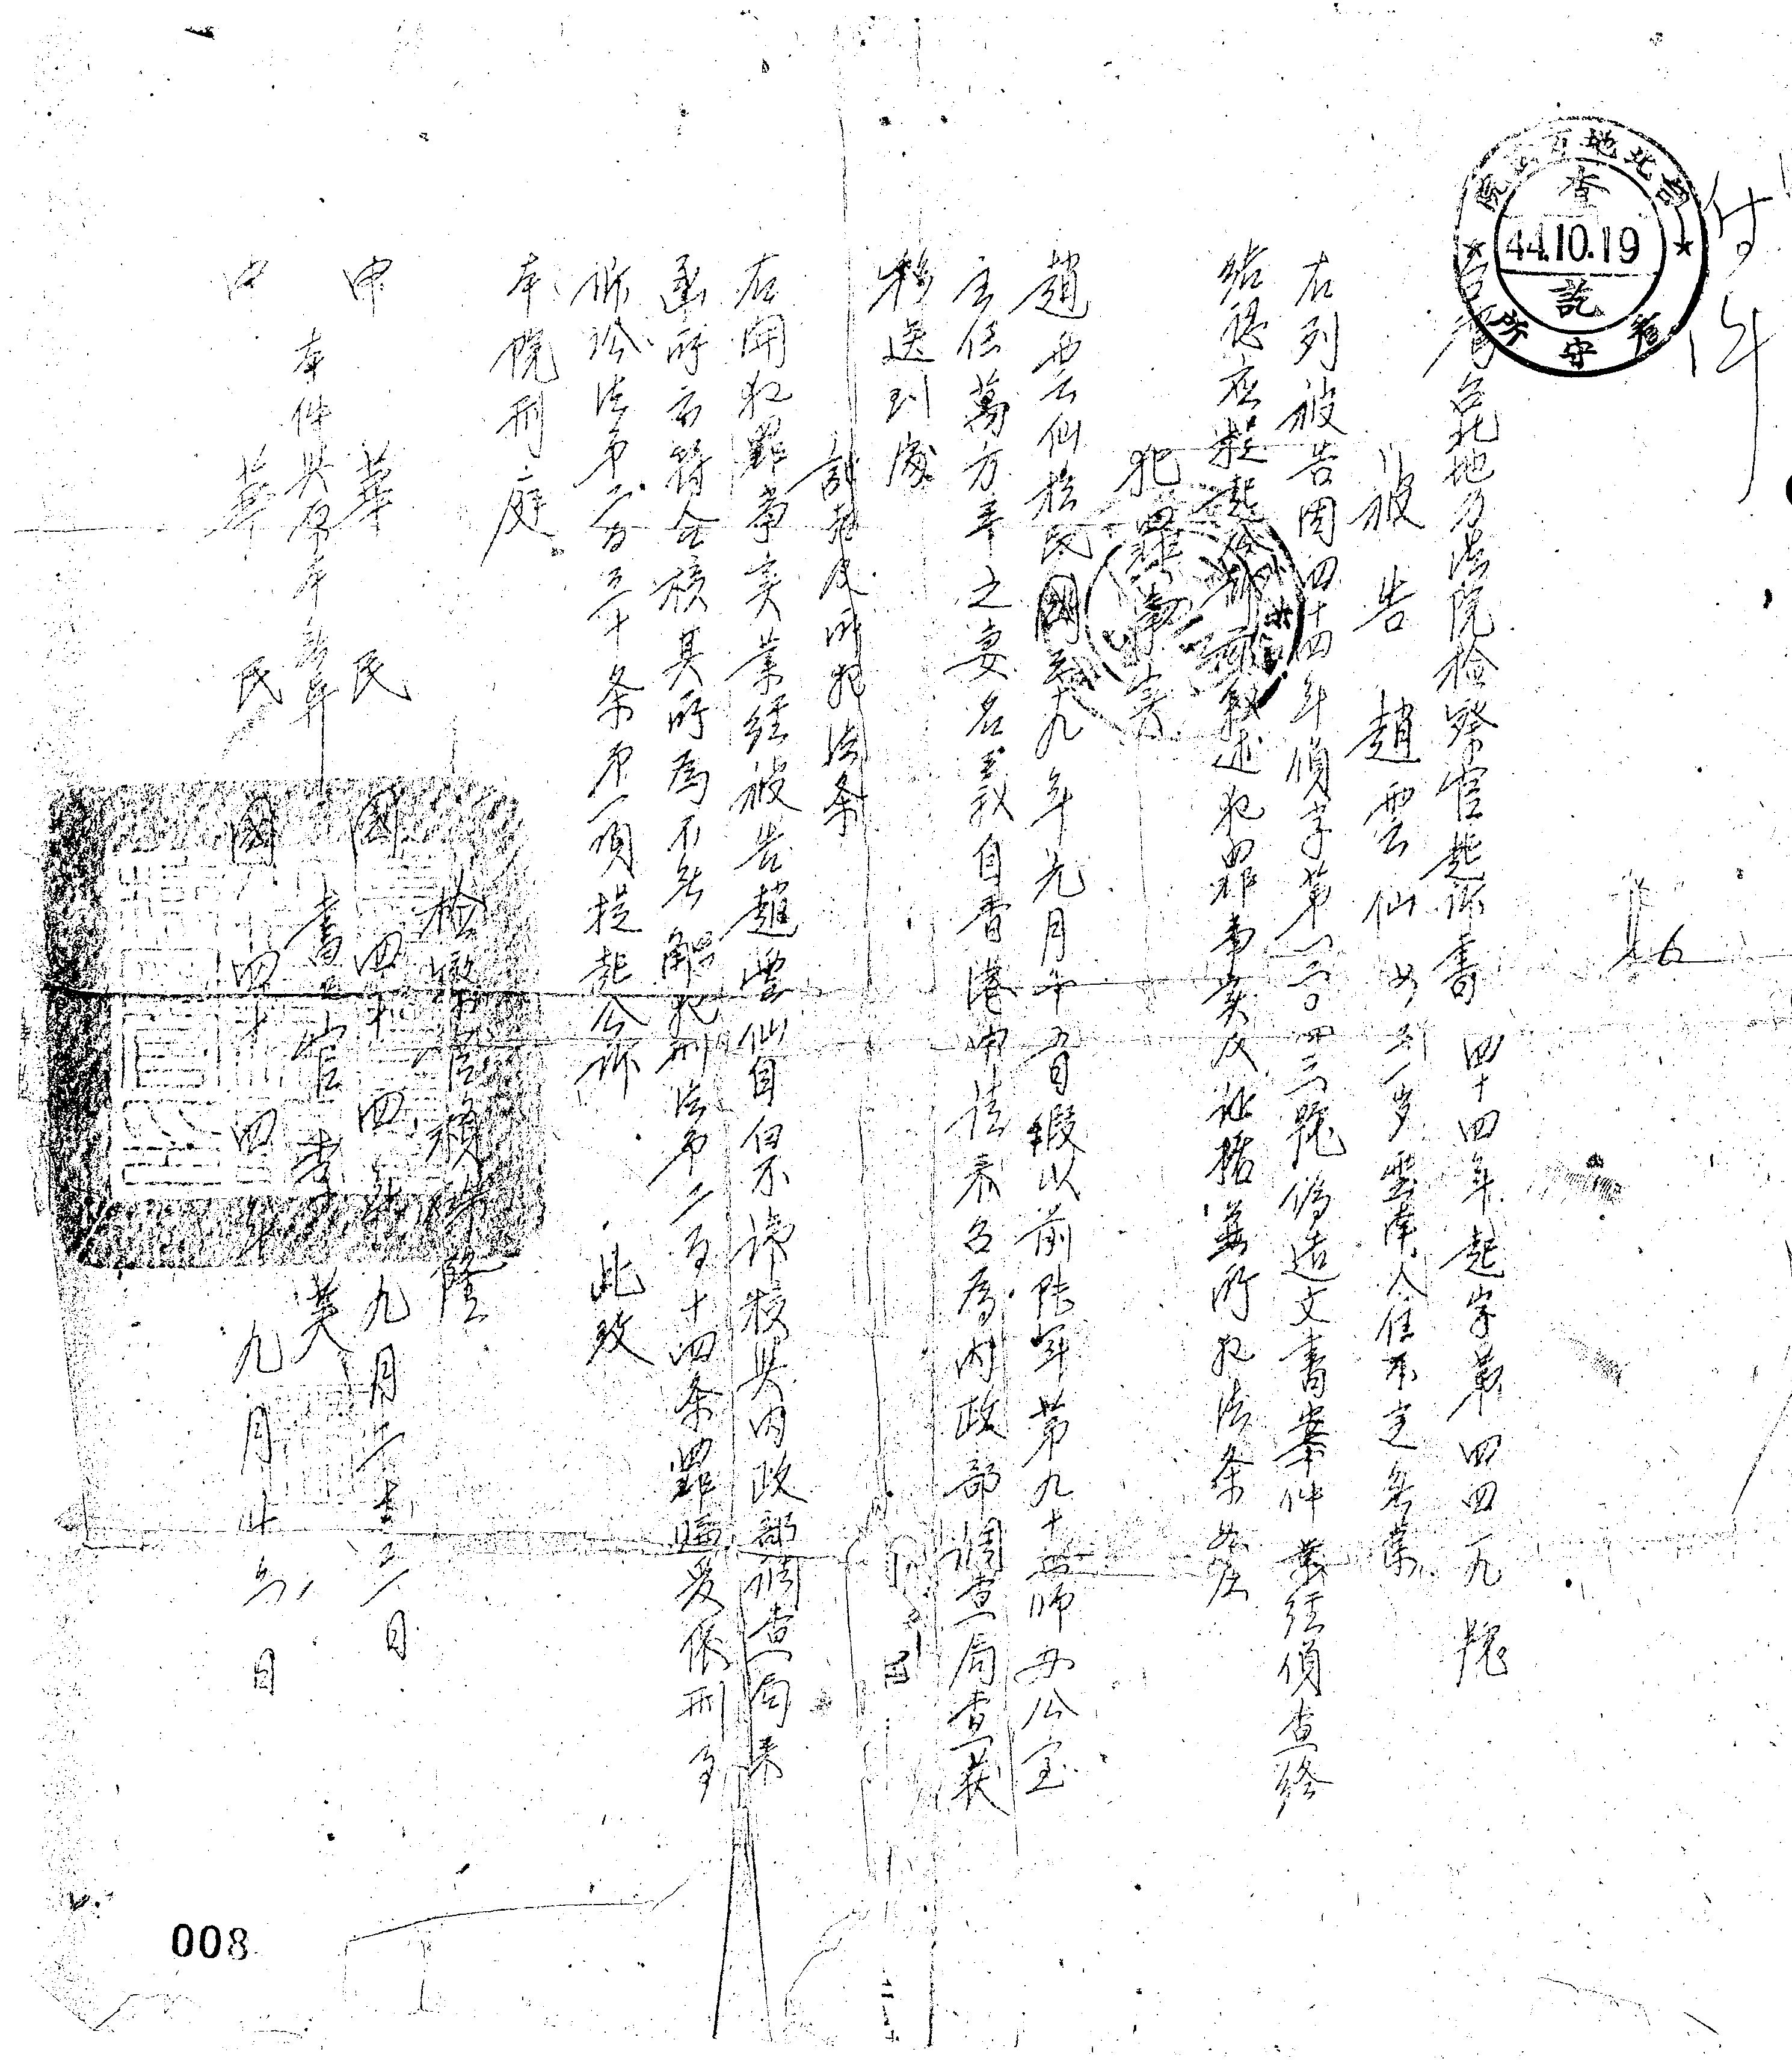 付件
台北地方法院
查訖
44.10.19
看守所
台灣台北地方法院檢察官起訴書 四十四年起字第四四九號
被告 趙雲仙 女 三一岁 雲南人住不定無業
右列被告因四十四年偵字第一三〇四三號偽造文書案件業經偵查終
結認應提起公訴茲敘述犯罪事实及证据並所犯法条如左
犯罪事实
趙雲仙於民國三十九年元月 假以前陸軍第九十三師办公室
主任萬方年之妻名義自香港申請來台為內政部調查局查获
移送到處
証据及所犯法条
右開犯罪事实業經被告趙雲仙自白不諱核與內政部調查局來
函所云符合核其所為不無觸犯刑法第二百十四条罪嫌爰依刑事
訴訟法第二百三十条第一項提起公訴 此致
本院刑庭
檢察官 隆
中華民國四十四年九月 日
本件與原本無異
書記官李 英
中華民國四十四年九月廿六日
008